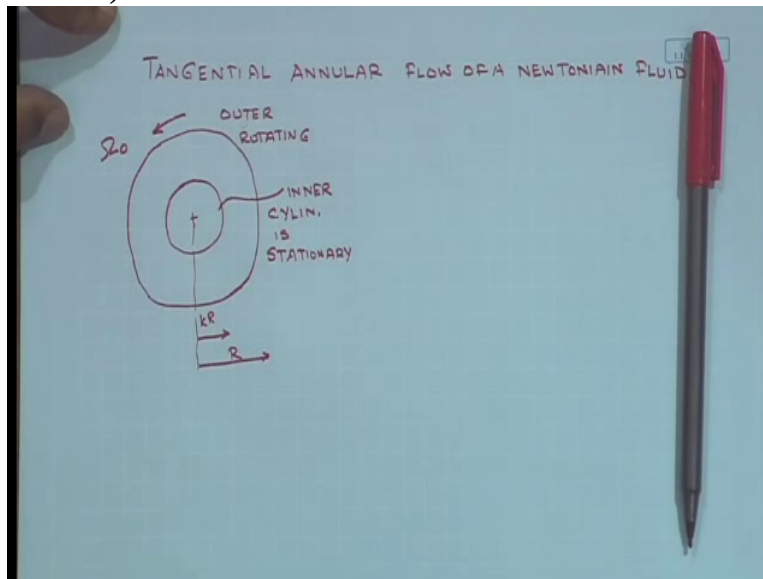 TANGENTIAL ANNULAR FLOW OF A NEWTONIAIN FLUID
OUTER
ROTATING
Ω0
INNER
CYLIN.
IS
STATIONARY
kR
R